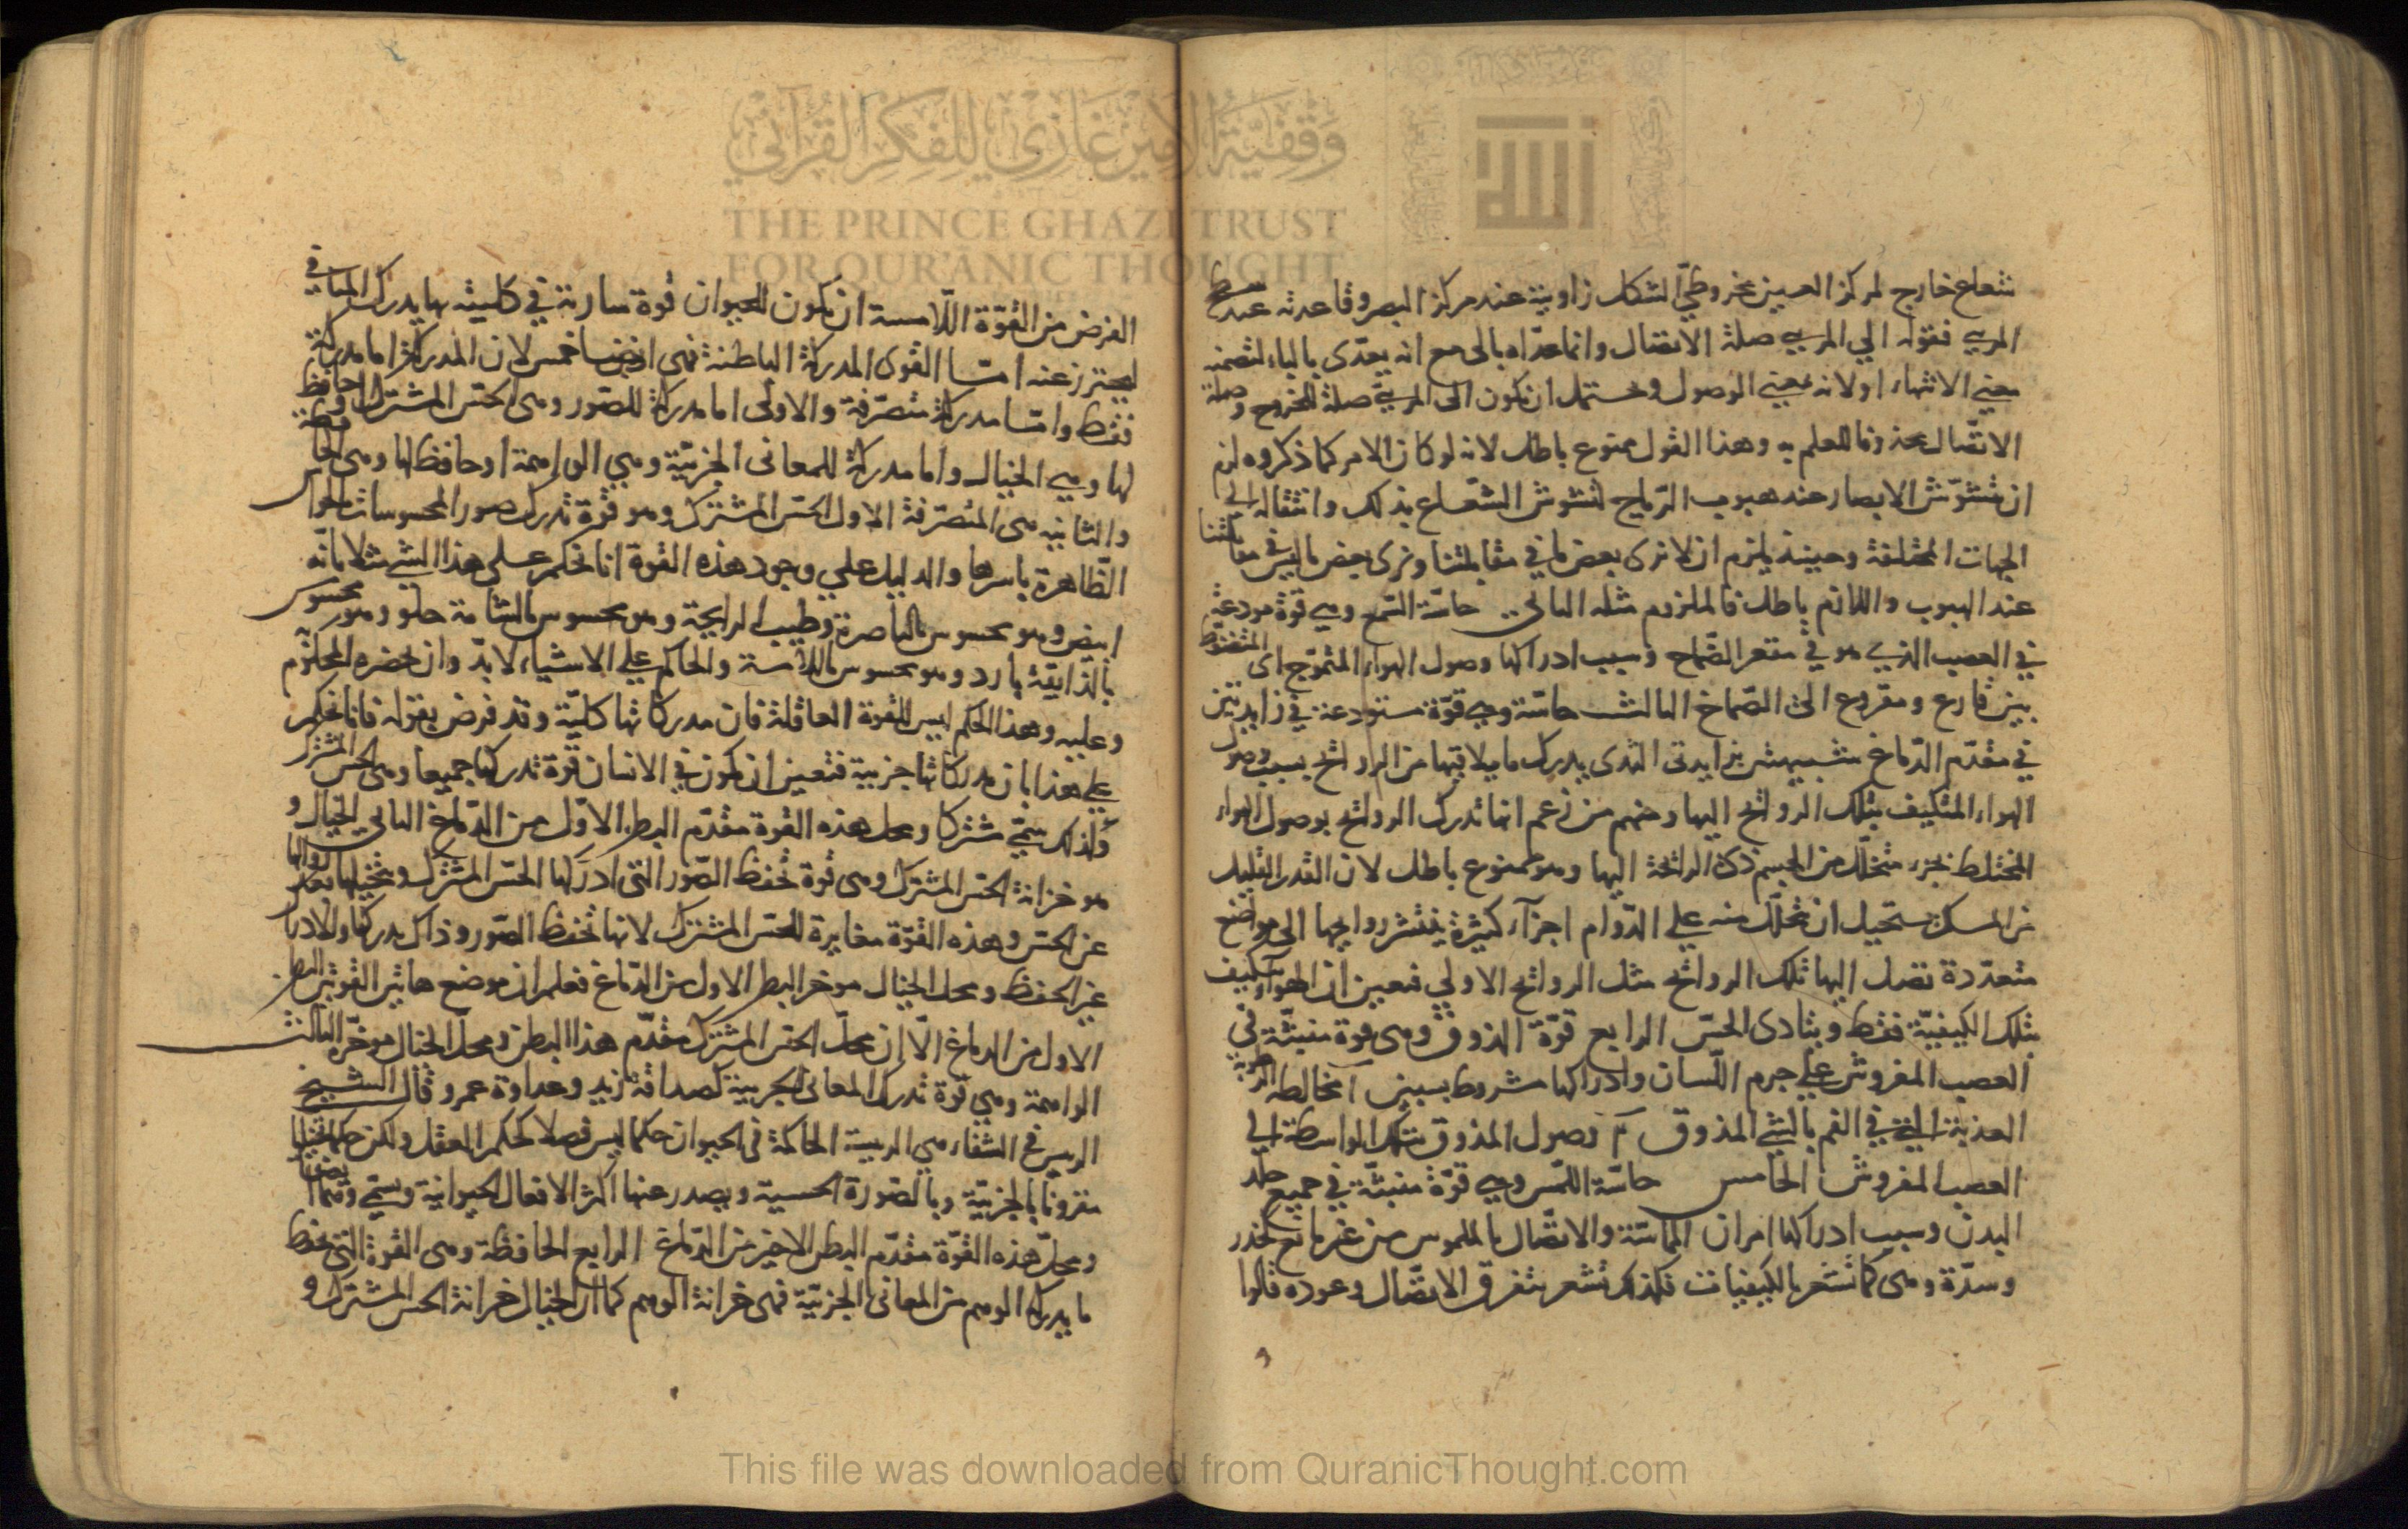 شعاع خارج لمركز العين مخروطيّ الشكل زاويته عند مركز البصر وقاعدته عند سطح
المرئي فقوله الي المرئي صلة الاتصال وانما عدّاه بالى مع انه يعدّى بالباء لتضمنه
معني الانتهاء اولانه بمعني الوصول ويحتمل ان يكون الى المرئيّ صلة للخروج وصلة
الاتّصال محذوفا للعلم به وهذا القول ممنوع باطل لانه لو كان الامر كما ذكروه لزم
ان تتشوّش الابصار عند هبوب الرّياح لتشوش الشّعاع بذلك وانتقاله الي
الجهات المختلفة وحينئذ يلزم ان لا نرى بعض ما في مقابلتنا ونرى بعض ما ليس في مقابلتنا
عند الهبوب واللازم باطل فالملزوم مثله الثاني حاسّة السّمع وهي قوّة مودعة
في العصب الذي هو في مقعر الصّماخ وسبب ادراكها وصول الهواء المتموّج اى المتضغط
بين قارع ومقروع الى الصّماخ الثالث حاسّة وهي قوّة مستودعة في زايدتين
في مقدّم الدّماغ شبيهتين بزايدتى الثدى يدرك ما يلاقيها من الروائح بسبب وصول
الهواء المتكيف بتلك الروائح اليها ومنهم من زعم انها تدرك الروائح بوصول الهواء
المختلط بجزء متحلّل من الجسم ذى الرائحة اليها وهو ممنوع باطل لان القدر القليل
من المسك يستحيل ان يتحلّل منه علي الدّوام اجزآء كثيرة ينتشر روايحها الى مواضع
متعدّدة تصل اليها تلك الروائح مثل الروائح الاولي فتعين ان الهواء يتكيف
بتلك الكيفيّة فقط ويتادى الحسّ الرابع قوّة الذوق وهى قوة منبثّة في
العصب المفروش علي جرم اللّسان وادراكها مشروط بسببين آ مخالطة الرطوبة
العذبة التي في الفم بالشئ المذوق ٢ وصول المذوق بتلك الواسطة الي
العصب المفروش الخامس حاسّة اللّمس وهي قوّة منبثّة في جميع جلد
البدن وسبب ادراكها امران المماسّة والاتصّال بالملموس من غير مانع كخدر
وسدّة وهى كما تشعر بالكيفيات فكذلك تشعر بتفرق الاتصّال وعوده قالوا
الغرض من القوّة اللّامسة ان يكون للحيوان قوة سارية في كليته بها يدرك المنافي
ليحترز عنه امّا القوى المدركة الباطنة فهي ايضا خمس لان المدركة اما مدركة
فقط وامّا مدركة متصّرفة والاولى اما مدركة للصّور وهى الحسّ المشترك او حافظة
لها وهي الخيال واما مدركة للمعانى الجزئيّة وهي الواهمة او حافظة لها وهى الحافظة
والثانيه هى المتصّرفة الاول الحسّ المشترك وهو قوّة تدرك صور المحسوسات بالحواس
الظّاهرة باسرها والدليل علي وجود هذه القوة انا نحكم على هذا الشئ مثلا بانّه
ابيض وهو محسوس بالباصرة وطيب الرايحة وهو محسوس بالشامة حلو وهو محسوس
بالذّايقة بارد وهو محسوس باللّامسة والحاكم علي الاشياء لا بدّ وان يحضره المحكوم به
وعليه وهذا الحكم ليس للقوة العاقلة فان مدركاتها كليّة وقد فرض بقوله فانا نحكم
علي هذا بان مدركاتها جزئية فتعين ان يكون في الانسان قوّة تدركها جميعا وهى الحس المشترك
ولذلك سمّي مشتركا ومحل هذه القوة مقدّم البطن الاوّل من الدّماغ الثاني الخيال و
هو خزانة الحسّ المشترك وهى قوة تحفظ الصّور التى ادركها الحسّ المشترك وتخيلها بعد زوالها
عن الحسّ وهذه القوّة مغايرة للحسّ المشترك لانها تحفظ الصّور وذاك يدركها والادراك
غير الحفظ ومحل الخيال موخر البطن الاول من الدّماغ فعلم ان موضع هاتين القوتين البطن
الاول من الدماغ الّا ان محلّ الحسّ المشترك مقدّم هذا البطن ومحلّ الخيال موخّره الثالث
الواهمة وهي قوّة تدرك المعانى الجزئية كصداقة زيد وعداوة عمرو وقال الشيخ
الرييس في الشفاء هى الرييسة الحاكمة في الحيوان حكما ليس فصلا كحكم العقل ولكن حكما تخيليا
مقرونا بالجزئيّة وبالصّورة الحسية ويصدر عنها اكثر الافعال الحيوانية وسمّي وهما ايضا
ومحلّ هذه القوّة مقدّم البطن الاخير من الدّماغ الرابع الحافظة وهى القوة التى تحفظ
ما يدركه الوهم من المعانى الجزئيّة فهى خزانة الوهم كما ان الخيال خزانة الحس المشترك و
وقفية الأمير غازي للفكر القرآني
THE PRINCE GHAZI TRUST
FOR QUR'ANIC THOUGHT
This file was downloaded from QuranicThought.com